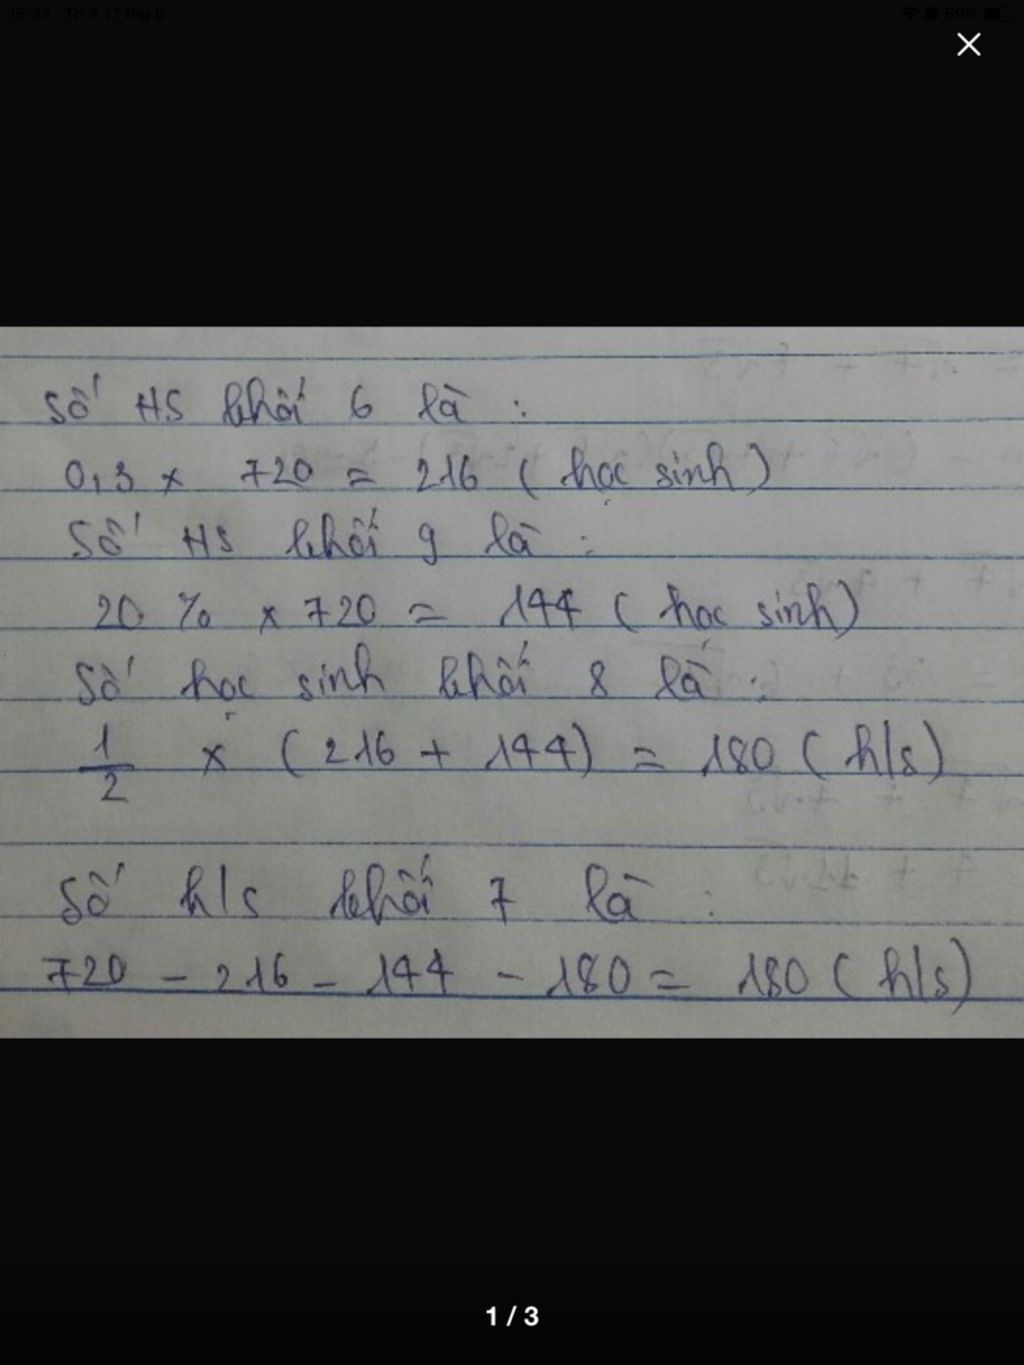 15:37 Th 4 17 thg 6
59%
Số HS khối 6 là :
0,3 x 720 = 216 ( học sinh )
Số HS khối 9 là :
20 % x 720 = 144 ( học sinh )
Số học sinh khối 8 là :
1/2 x ( 216 + 144 ) = 180 ( h/s )
Số h/s khối 7 là :
720 - 216 - 144 - 180 = 180 ( h/s )
1 / 3